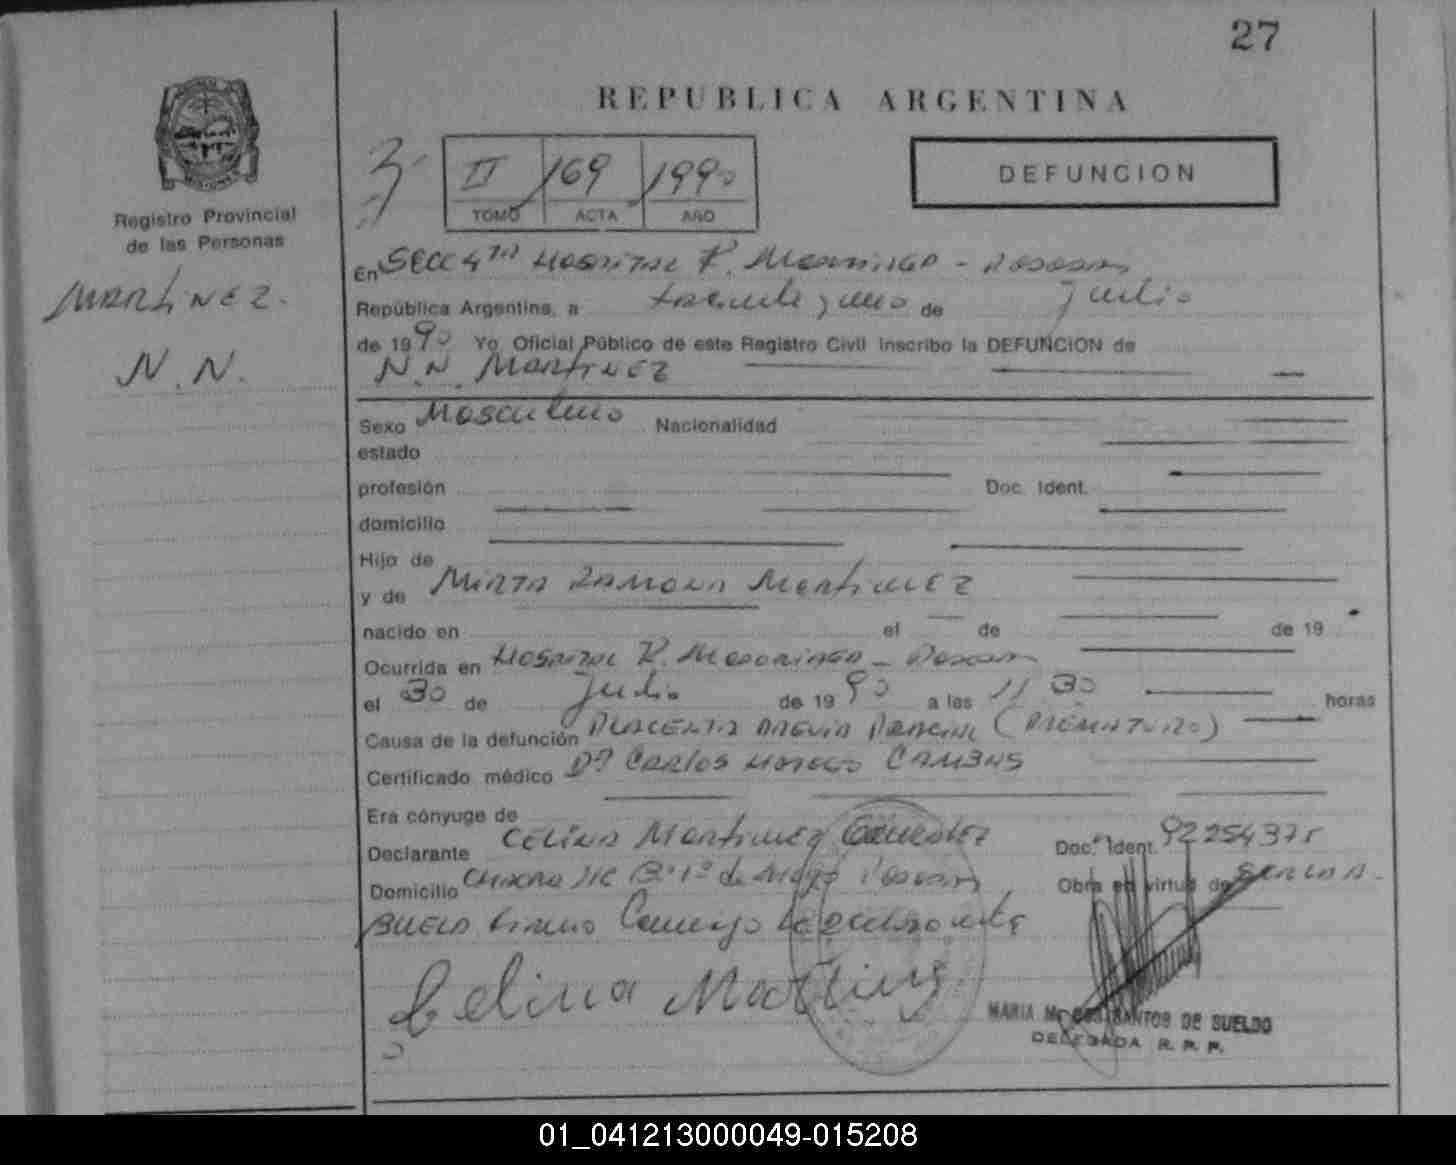 27
REPUBLICA ARGENTINA
II 169 1990
TOMO ACTA AÑO
DEFUNCION
Registro Provincial
de las Personas
MARTINEZ.
N.N.
En Secc 4ta Hospital R. Madariaga - Posadas
República Argentina, a treinta y uno de Julio
de 1990 Yo, Oficial Público de este Registro Civil inscribo la DEFUNCION de
N.N. MARTINEZ
Sexo Masculino Nacionalidad
estado
profesión Doc. Ident.
domicilio
Hijo de
y de Mirta Ramona Martinez
nacido en el de de 19
Ocurrida en Hospital R. Madariaga - Posadas
el 30 de Julio de 1990 a las 11 30 horas
Causa de la defunción Placenta previa parcial (prematuro)
Certificado médico Dr Carlos
Era cónyuge de
Declarante Celina Martinez Doc. Ident. 9225437
Domicilio Chacra Bº 1º de Mayo Posadas Obra en virtud de ser la
abuela
Celina Martinez
MARIA M. DOS SANTOS DE SUELDO
DELEGADA R. P. P.
01_041213000049-015208